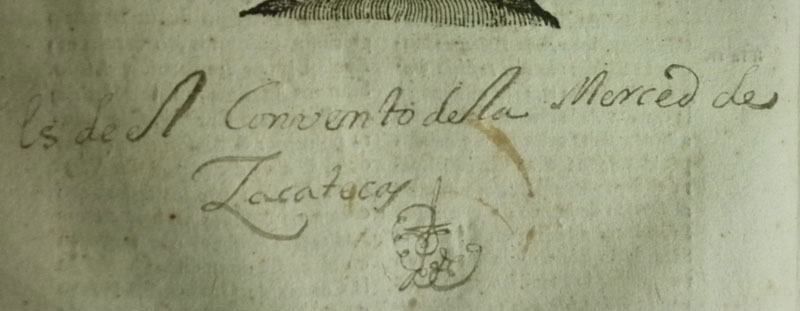 Es de el Convento de la Merced de
Zacatecas